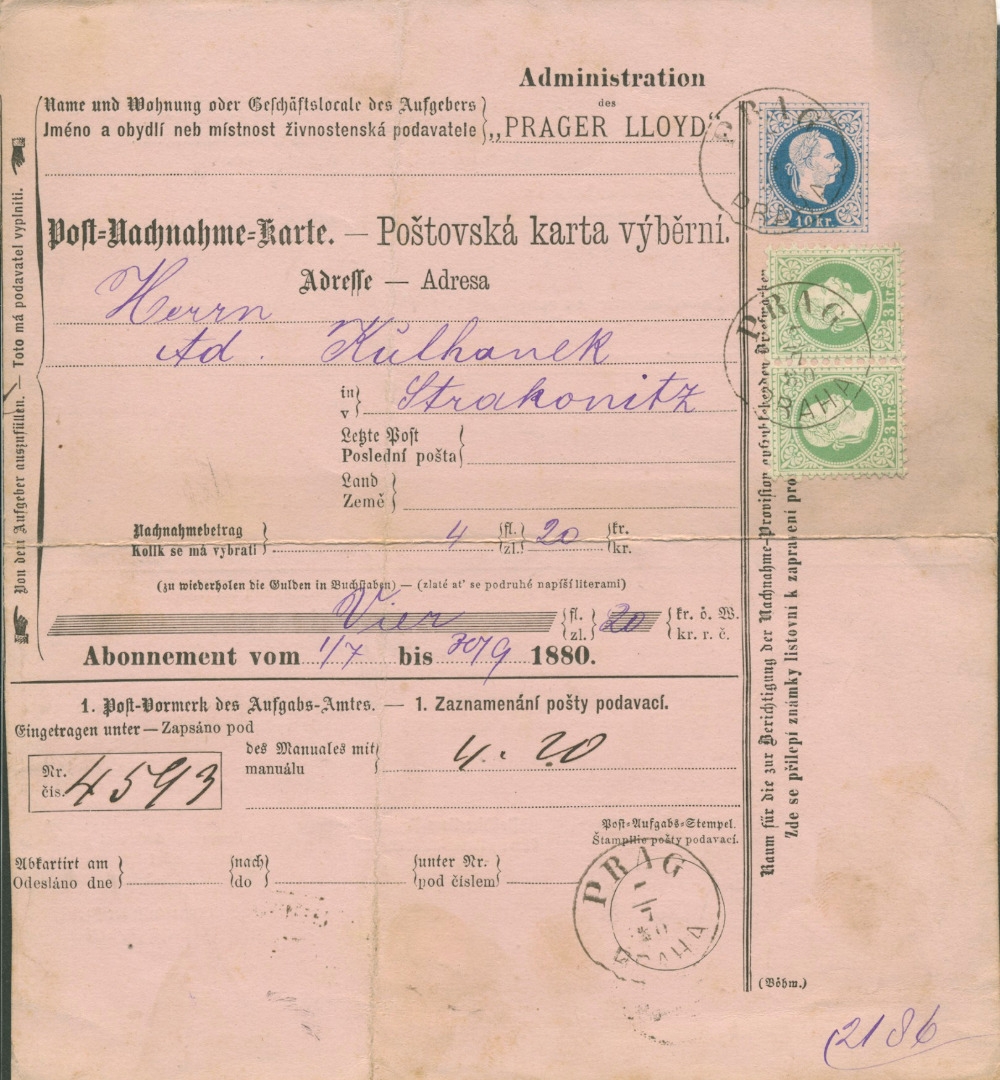 Administration
des
Name und Wohnung oder Geschäftslocale des Aufgebers
Jméno a obydlí neb místnost živnostenská podavatele
„PRAGER LLOYD“
PRAG
10 kr.
Post-Nachnahme-Karte. — Poštovská karta výběrní.
Adresse — Adresa
Herrn
Ad. Kulhanek
in
v
Strakonitz
Letzte Post
Poslední pošta
Land
Země
Nachnahmebetrag
Kolik se má vybrati
4 fl. zl. 20 kr. kr.
(zu wiederholen die Gulden in Buchstaben) — (zlaté at' se podruhé napíší literami)
Vier fl. zl. 20 kr. ö. W. kr. r. č.
Abonnement vom 1/7 bis 30/9 1880.
Von dem Aufgeber auszufüllen. — Toto má podavatel vyplniti.
3 kr.
PRAG
PRAHA
3 kr.
1. Post-Vormerk des Aufgabs-Amtes. — 1. Zaznamenání pošty podavací.
Eingetragen unter — Zapsáno pod
Nr.
čís. 4593
des Manuales mit
manuálu
4. 20
Post-Aufgabs-Stempel.
Štampilie pošty podavací.
Abkartirt am
Odesláno dne
nach
do
unter Nr.
pod číslem
PRAG
1/7
80
PRAHA
Raum für die zur Berichtigung der Nachnahme-Provision
Zde se přilepí známky listovní k zapravení pro
(Böhm.)
2186